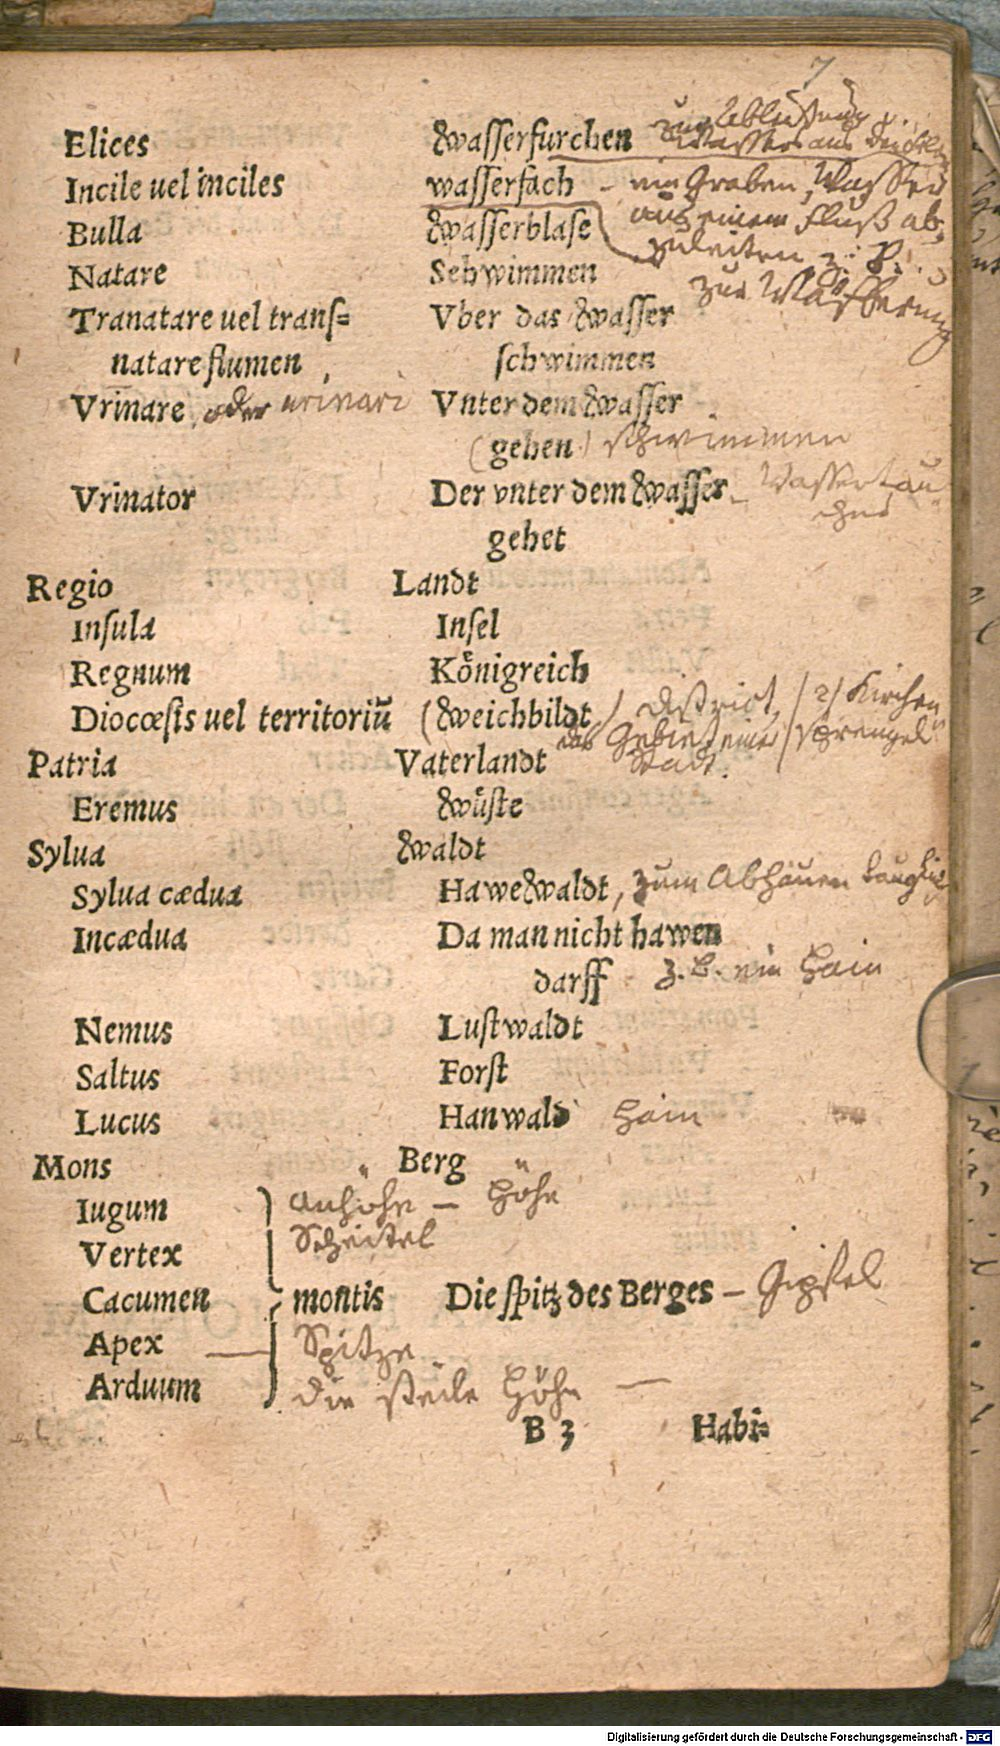 7
Elices Wasserfurchen zur Ableitung
Wassers aus
Incile uel inciles wasserfach – ein Graben, Wasser
aus einem Fluß ab-
Bulla Wasserblase zuleiten z. B.
Natare Schwimmen zur Wässerung
Tranatare uel trans= Vber das Wasser
natare flumen schwimmen
Vrinare oder urinari Vnter dem Wasser
(gehen) schwimmen
Vrinator Der vnter dem Wasser – Wassertau
cher
gehet
Regio Landt
Insula Insel
Regnum Königreich
Diocœsis uel territoriū (Weichbildt) District, / 2) Kirchen
das Gebiet einer / sprengel.
Patria Vaterlandt Stadt.
Eremus Wüste
Sylua Waldt
Sylua cædua HaweWaldt, zum Abhauen tauglich
Incædua Da man nicht hawen
darff z. B. ein Hain
Nemus Lustwaldt
Saltus Forst
Lucus Hanwald Hain
Mons Berg
Iugum Anhöhe – Höhe
Vertex Scheitel
Cacumen montis Die spitz des Berges – Gipfel
Apex — Spitze
Arduum die steile Höhe —
B 3 Habi=
Digitalisierung gefördert durch die Deutsche Forschungsgemeinschaft - DFG